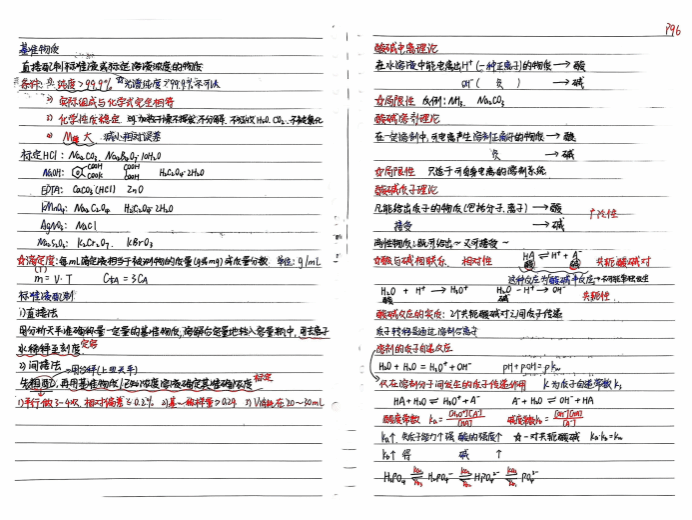 基准物质
直接配制标准液或标定溶液浓度的物质
条件: 1) 纯度>99.9%
2) 实际组成与化学式完全相符
3) 化学性质稳定 如加热干燥不挥发不分解、不吸收H₂O.CO₂.不被氧化
4) M 大 减小相对误差
标定HCl: Na₂CO₃、Na₂B₄O₇·10H₂O
NaOH: COOH COOK COOH COOH H₂C₂O₄·2H₂O
EDTA: CaCO₃(HCl) ZnO
KMnO₄: Na₂C₂O₄ H₂C₂O₄·2H₂O
AgNO₃: NaCl
Na₂S₂O₃: K₂Cr₂O₇、KBrO₃
☆滴定度: 每mL滴定液相当于被测物的质量(g或mg)或质量分数 单位: g/mL
(T)
m = V·T
标准液配制
1) 直接法
用分析天平准确称量一定量的基准物质, 溶解后定量地转入容量瓶中, 用去离子
水稀释至刻度 定容
2) 间接法 用 (上皿天平)
先粗配, 再用基准物质/已知浓度溶液确定其准确浓度 标定
1) 平行做3~4次, 相对偏差≤0.2% 2) 基 称样量>0.2g 3) V消耗在20~30mL
P96
酸碱电离理论
在水溶液中能电离出H⁺(一种正离子)的物质→酸
OH⁻( 负 ) →碱
☆局限性 反例: NH₃、Na₂CO₃
酸碱溶剂理论
在一定溶剂中, 能电离产生溶剂正离子的物质→酸
负 →碱
☆局限性 只适于可自身电离的溶剂系统
酸碱质子理论
凡能给出质子的物质(包括分子、离子)→酸
接受 →碱
广泛性
两性物质: 既可给出~又可接受~
☆酸与碱相联系、相对性 HA ⇌ H⁺ + A⁻ 共轭酸碱对
酸 碱
这种反应为酸碱半反应→不可能单独发生
H₂O + H⁺ → H₃O⁺ H₂O - H⁺ → OH⁻ 共轭性
碱 酸
酸碱反应的实质: 2个共轭酸碱对之间质子传递
质子转移是通过溶剂合质子
溶剂的质子自递反应
H₂O + H₂O = H₃O⁺ + OH⁻ pH + pOH = pKw
仅在溶剂分子间发生的质子传递作用 K为质子自递常数Ks
HA + H₂O ⇌ H₃O⁺ + A⁻ A⁻ + H₂O ⇌ OH⁻ + HA
酸度常数 Ka = [H₃O⁺][A⁻]/[HA] 碱度常数Kb = [OH⁻][HA]/[A⁻]
Ka↑ 失质子能力↑强 酸的强度↑ ☆一对共轭酸碱 Ka·Kb = Kw
Kb↑ 得 碱 ↑
H₃PO₄ ⇌ H₂PO₄⁻ ⇌ HPO₄²⁻ ⇌ PO₄³⁻